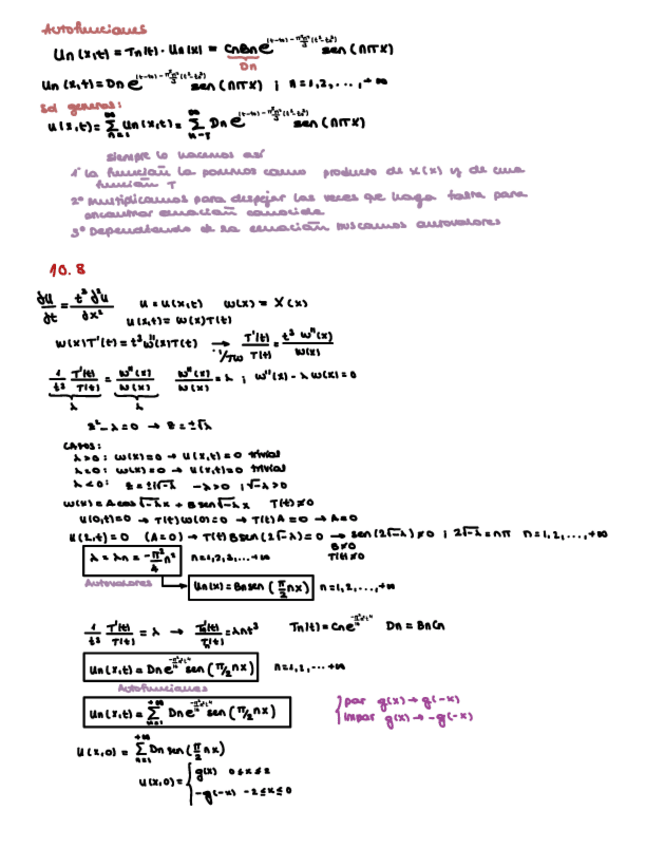 Autofunciones
Un(x,t) = Tn(t) · Un(x) = CnBn e^((t-t0) - π²n²/3 (t³-t0³)) sen(nπx)
Dn
Un(x,t) = Dn e^((t-t0) - π²n²/3 (t³-t0³)) sen(nπx) ; n=1,2,...,+∞
Sol general:
u(x,t) = ∑_{n=1}^{∞} Un(x,t) = ∑_{n=1}^{∞} Dn e^((t-t0) - π²n²/3 (t³-t0³)) sen(nπx)
siempre lo hacemos así
1º La función la ponemos como producto de x(x) y de una
función T
2º Multiplicamos para despejar las veces que haga falta para
encontrar ecuación conocida
3º Dependiendo de la ecuación buscamos autovalores
10.8
∂u/∂t = t³∂²u/∂x² u = u(x,t) w(x) = X(x)
u(x,t) = w(x)T(t)
w(x)T'(t) = t³w''(x)T(t) → ·1/Tw T'(t)/T(t) = t³ w''(x)/w(x)
1/t³ T'(t)/T(t) = w''(x)/w(x) w''(x)/w(x) = λ ; w''(x) - λ w(x) = 0
λ λ
z² - λ = 0 → z = ±√λ
CASOS:
λ>0: w(x)=0 → u(x,t)=0 trivial
λ=0: w(x)=0 → u(x,t)=0 trivial
λ<0: z = ±i√-λ -λ>0 ; √-λ>0
w(x) = A cos√-λ x + B sen√-λ x T(t)≠0
u(0,t)=0 → T(t)w(0)=0 → T(t)A=0 → A=0
u(2,t)=0 (A=0) → T(t)B sen(2√-λ)=0 → sen(2√-λ)≠0 ; 2√-λ=nπ n=1,2,...,+∞
B≠0
T(t)≠0
λ = λn = -π²/4 n² n=1,2,3,...+∞
Autovalores → Un(x) = Bn sen(π/2 nx) n=1,2,...,+∞
1/t³ T'(t)/T(t) = λ → Tn'(t)/Tn(t) = λnt³ Tn(t) = Cn e^(-π²n²t⁴/16) Dn = BnCn
Un(x,t) = Dn e^(-π²n²t⁴/16) sen(π/2 nx) n=1,2,...+∞
Autofunciones
Un(x,t) = ∑_{n=1}^{+∞} Dn e^(-π²n²t⁴/16) sen(π/2 nx)
par g(x) → g(-x)
impar g(x) → -g(-x)
u(x,0) = ∑_{n=1}^{+∞} Dn sen(π/2 nx)
u(x,0) = { g(x) 0≤x≤2
-g(-x) -2≤x≤0